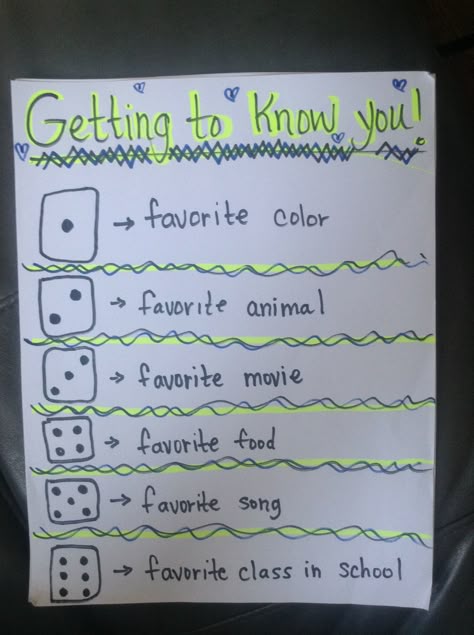 Getting to Know you!
→ favorite color
→ favorite animal
→ favorite movie
→ favorite food
→ favorite song
→ favorite class in school